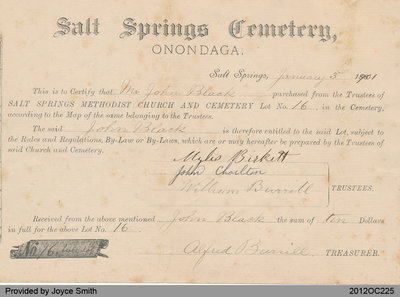 Salt Springs Cemetery,
ONONDAGA.
Salt Springs, January 5 1901
This is to Certify that Mr John Black purchased from the Trustees of
SALT SPRINGS METHODIST CHURCH AND CEMETERY Lot No. 16 in the Cemetery,
according to the Map of the same belonging to the Trustees.
The said John Black is therefore entitled to the said Lot, subject to
the Rules and Regulations, By-Law or By-Laws, which are or may hereafter be prepared by the Trustees of
said Church and Cemetery.
Myles Birkett
John Chorlton
William Burrill TRUSTEES.
Received from the above mentioned John Black the sum of ten Dollars
in full for the above Lot No. 16
No. 16
Alfred Burrill TREASURER.
Provided by Joyce Smith 2012OC225